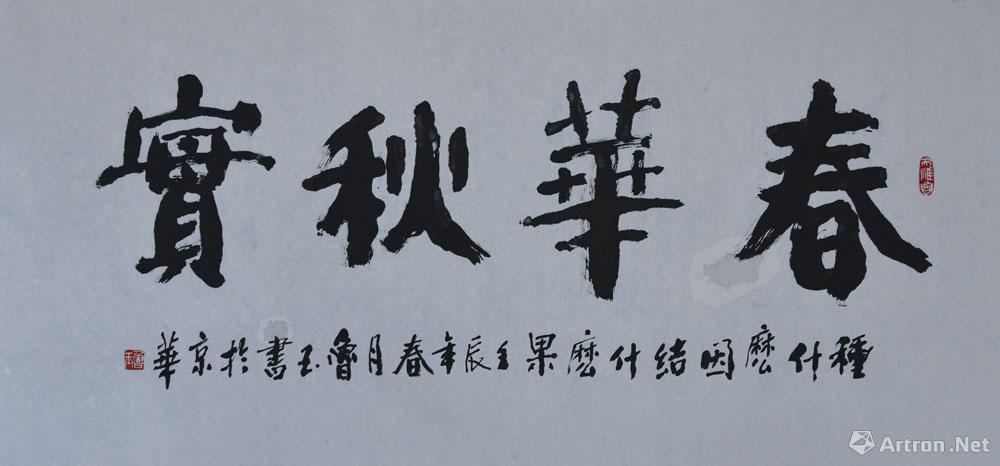 春華秋實
種什麼因結什麼果壬辰年春月魯玉書於京華
Artron.Net